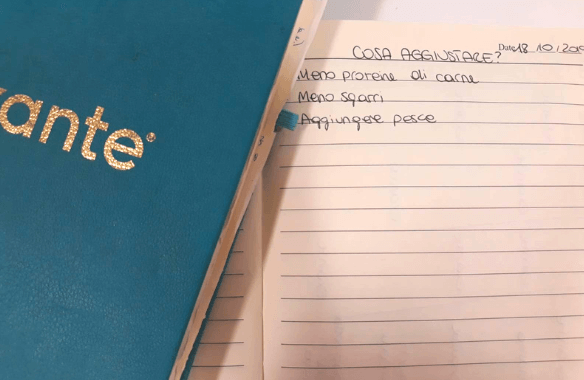 ante
COSA AGGIUSTARE?
Date 18.10.20
Meno proteine di carne
Meno sgarri
Aggiungere pesce